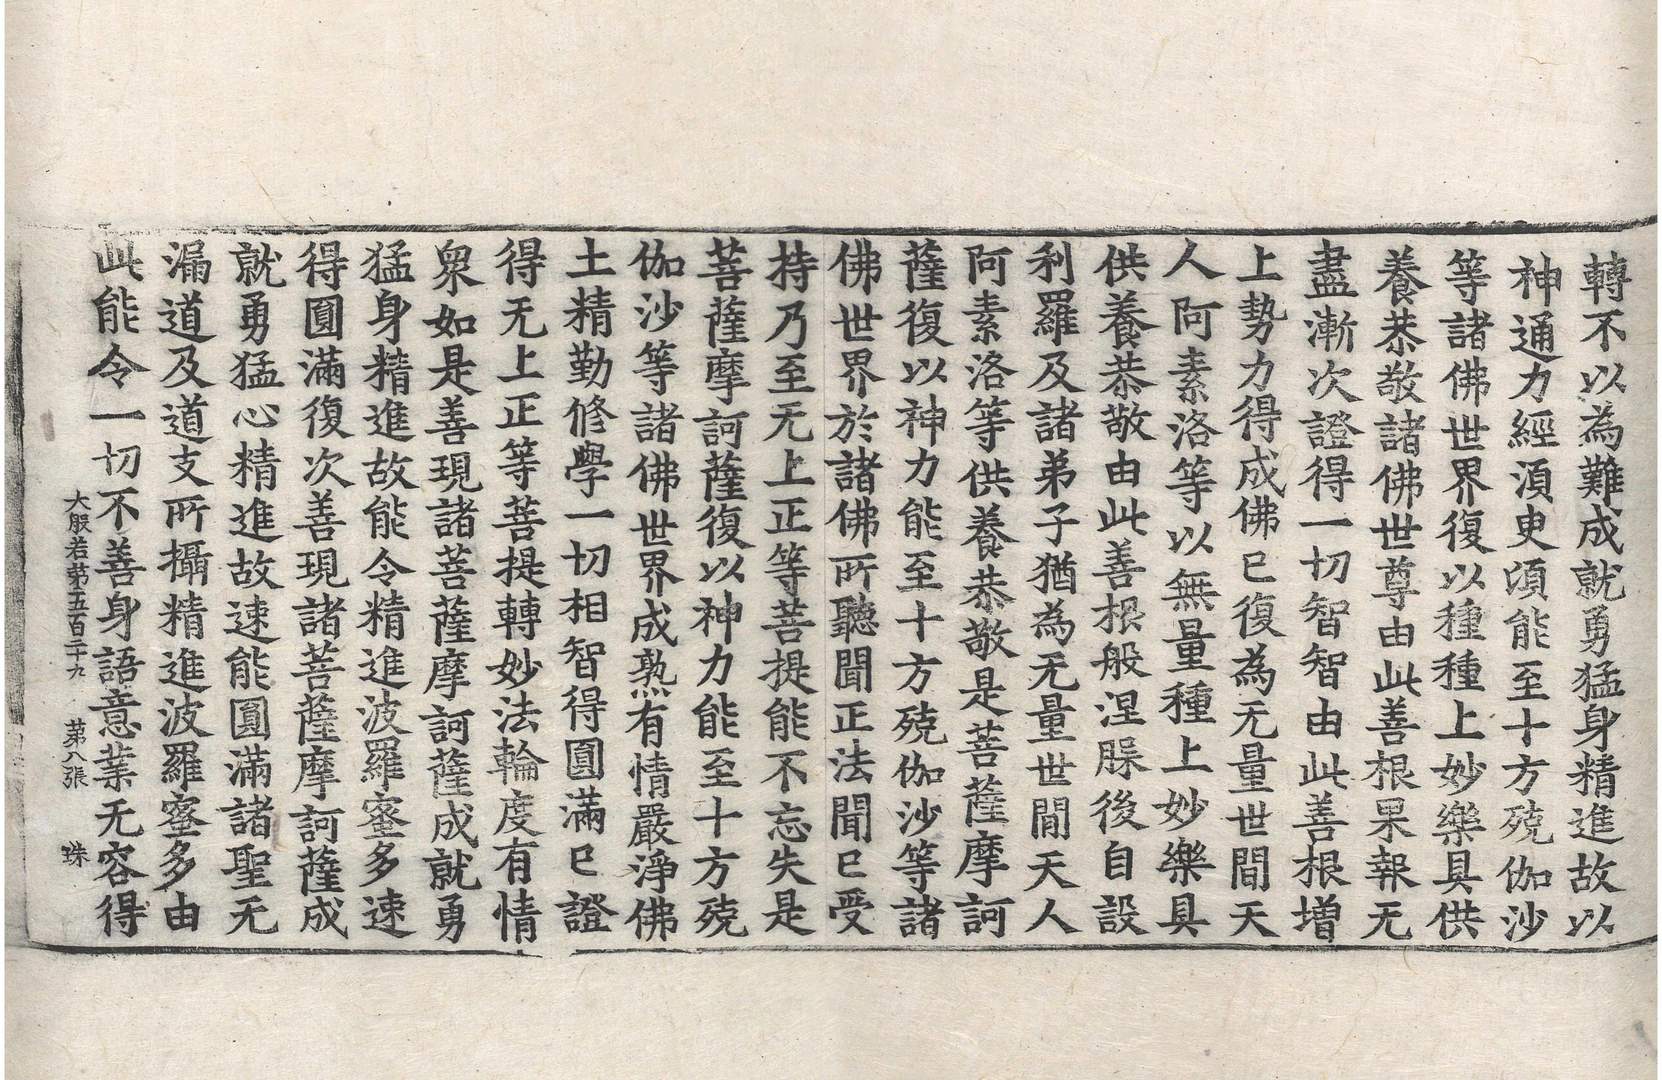 轉不以為難成就勇猛身精進故以
神通力經湏㬰頃能至十方殑伽沙
等諸佛世界復以種種上妙樂具供
養恭敬諸佛世尊由此善根果報无
盡漸次證得一切智智由此善根增
上勢力得成佛已復為无量世間天
人阿素洛等以無量種上妙樂具
供養恭敬由此善根般涅槃後自設
利羅及諸弟子猶為无量世間天人
阿素洛等供養恭敬是菩薩摩訶
薩復以神力能至十方殑伽沙等諸
佛世界於諸佛所聽聞正法聞已受
持乃至无上正等菩提能不忘失是
菩薩摩訶薩復以神力能至十方殑
伽沙等諸佛世界成熟有情嚴淨佛
土精勤修學一切相智得圓滿已證
得无上正等菩提轉妙法輪度有情
衆如是善現諸菩薩摩訶薩成就勇
猛身精進故能令精進波羅蜜多速
得圓滿復次善現諸菩薩摩訶薩成
就勇猛心精進故速能圓滿諸聖无
漏道及道支所攝精進波羅蜜多由
此能令一切不善身語意業无容得
大般若苐五百三十九 苐八張 珠